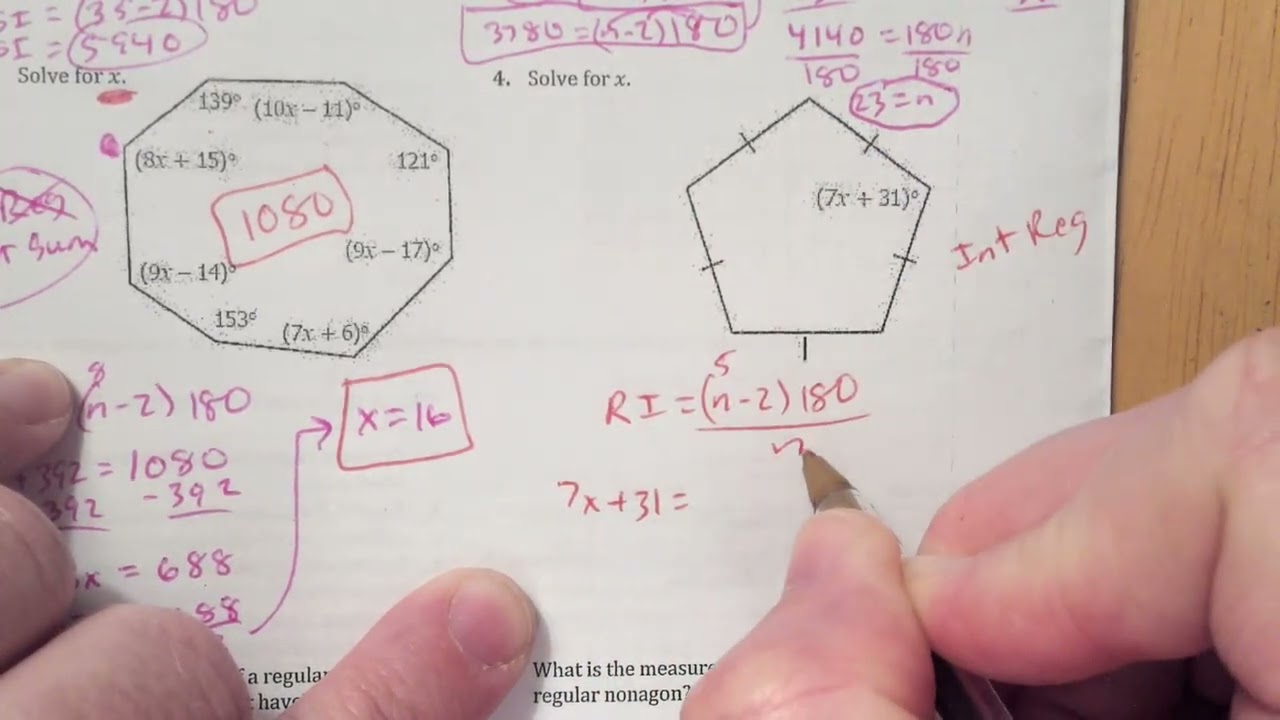 SI = (35-2)180
SI = 5940
3780 = (n-2)180
4140 = 180n
180 180
23 = n
Solve for x.
139° (10x − 11)°
(8x + 15)° 121°
1080
(9x − 17)°
(9x − 14)°
153° (7x + 6)°
Sum
8
(n-2) 180
+392 = 1080
392 -392
x = 688
88
x = 16
4. Solve for x.
(7x + 31)°
Int Reg
5
RI = (n-2) 180
n
7x+31 =
a regular
have
What is the measure
regular nonagon?